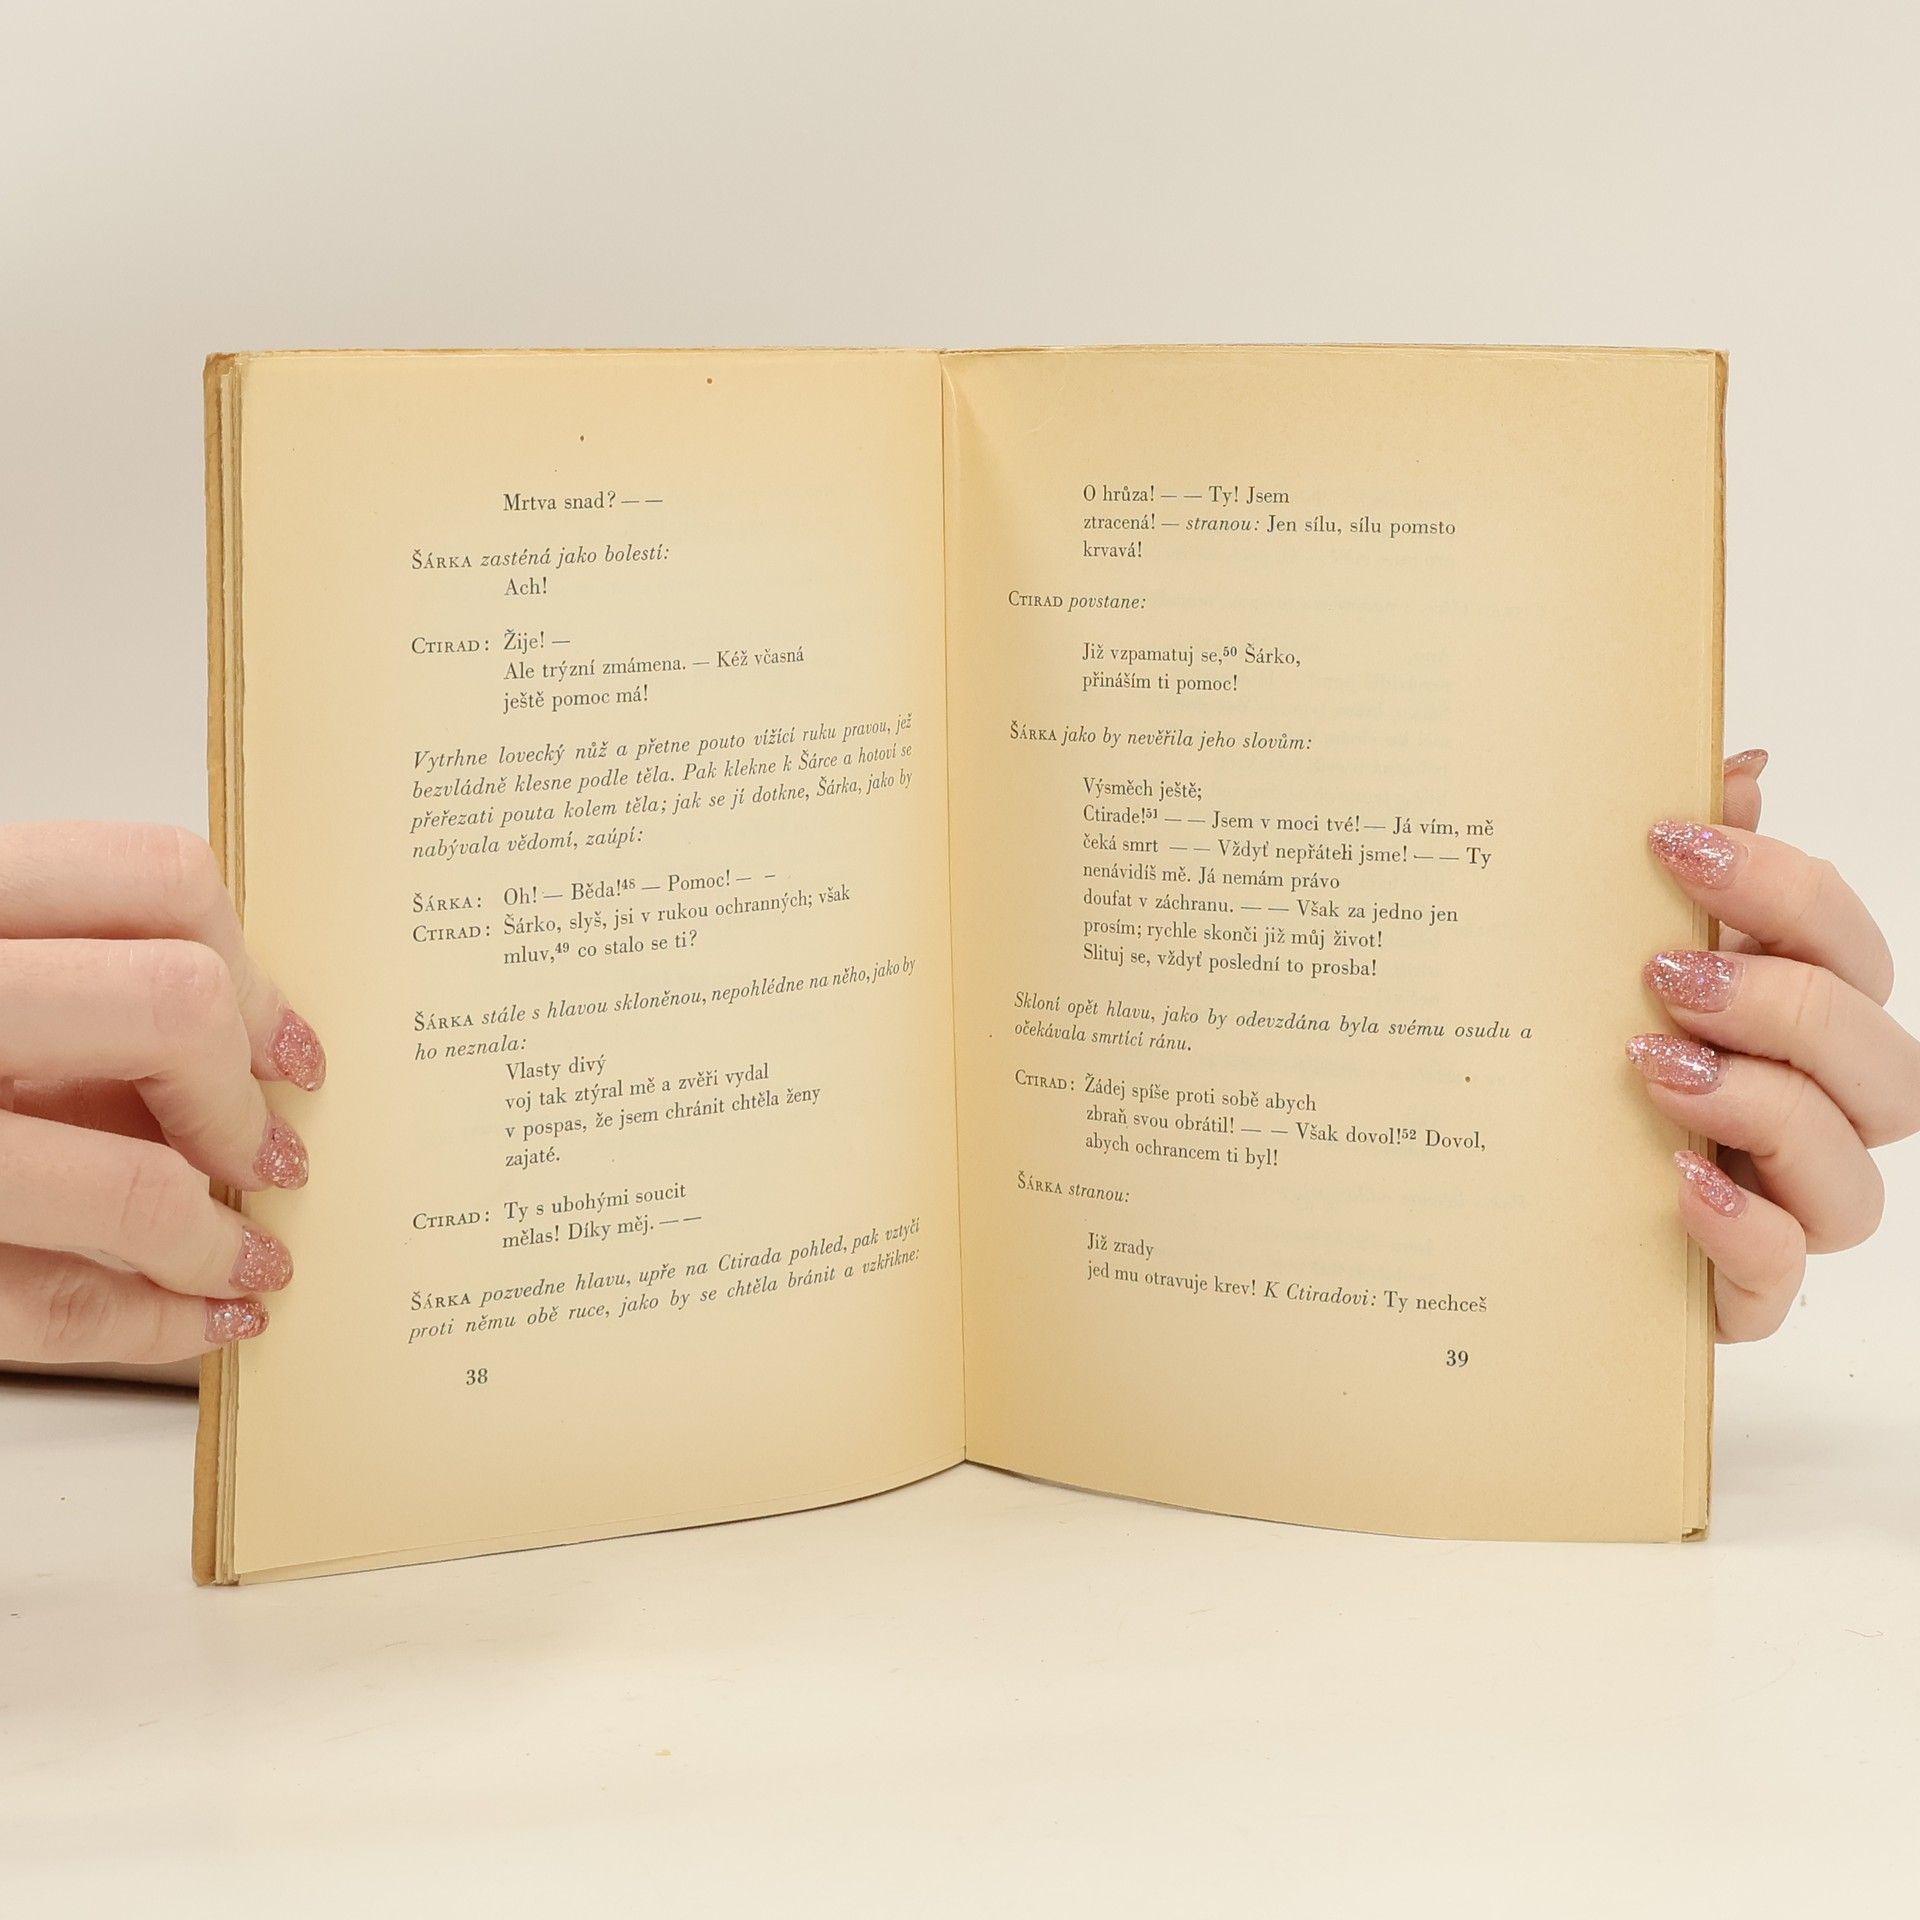 Mrtva snad? — —
ŠÁRKA zasténá jako bolestí:
Ach!
CTIRAD: Žije! —
Ale trýzní zmámena. — Kéž včasná
ještě pomoc má!
Vytrhne lovecký nůž a přetne pouto vížící ruku pravou, jež
bezvládně klesne podle těla. Pak klekne k Šárce a hotoví se
přeřezati pouta kolem těla; jak se jí dotkne, Šárka, jako by
nabývala vědomí, zaúpí:
ŠÁRKA: Oh! — Běda!⁴⁸ — Pomoc! — –
CTIRAD: Šárko, slyš, jsi v rukou ochranných; však
mluv,⁴⁹ co stalo se ti?
ŠÁRKA stále s hlavou skloněnou, nepohlédne na něho, jako by
ho neznala:
Vlasty divý
voj tak ztýral mě a zvěři vydal
v pospas, že jsem chránit chtěla ženy
zajaté.
CTIRAD: Ty s ubohými soucit
mělas! Díky měj. — —
ŠÁRKA pozvedne hlavu, upře na Ctirada pohled, pak vztyčí
proti němu obě ruce, jako by se chtěla bránit a vzkřikne:
38
O hrůza! — — Ty! Jsem
ztracená! — stranou: Jen sílu, sílu pomsto
krvavá!
CTIRAD povstane:
Již vzpamatuj se,⁵⁰ Šárko,
přináším ti pomoc!
ŠÁRKA jako by nevěřila jeho slovům:
Výsměch ještě;
Ctirade!⁵¹ — — Jsem v moci tvé! — Já vím, mě
čeká smrt — — Vždyť nepřáteli jsme! — — Ty
nenávidíš mě. Já nemám právo
doufat v záchranu. — — Však za jedno jen
prosím; rychle skonči již můj život!
Slituj se, vždyť poslední to prosba!
Skloní opět hlavu, jako by odevzdána byla svému osudu a
očekávala smrtící ránu.
CTIRAD: Žádej spíše proti sobě abych
zbraň svou obrátil! — — Však dovol!⁵² Dovol,
abych ochrancem ti byl!
ŠÁRKA stranou:
Již zrady
jed mu otravuje krev! K Ctiradovi: Ty nechceš
39